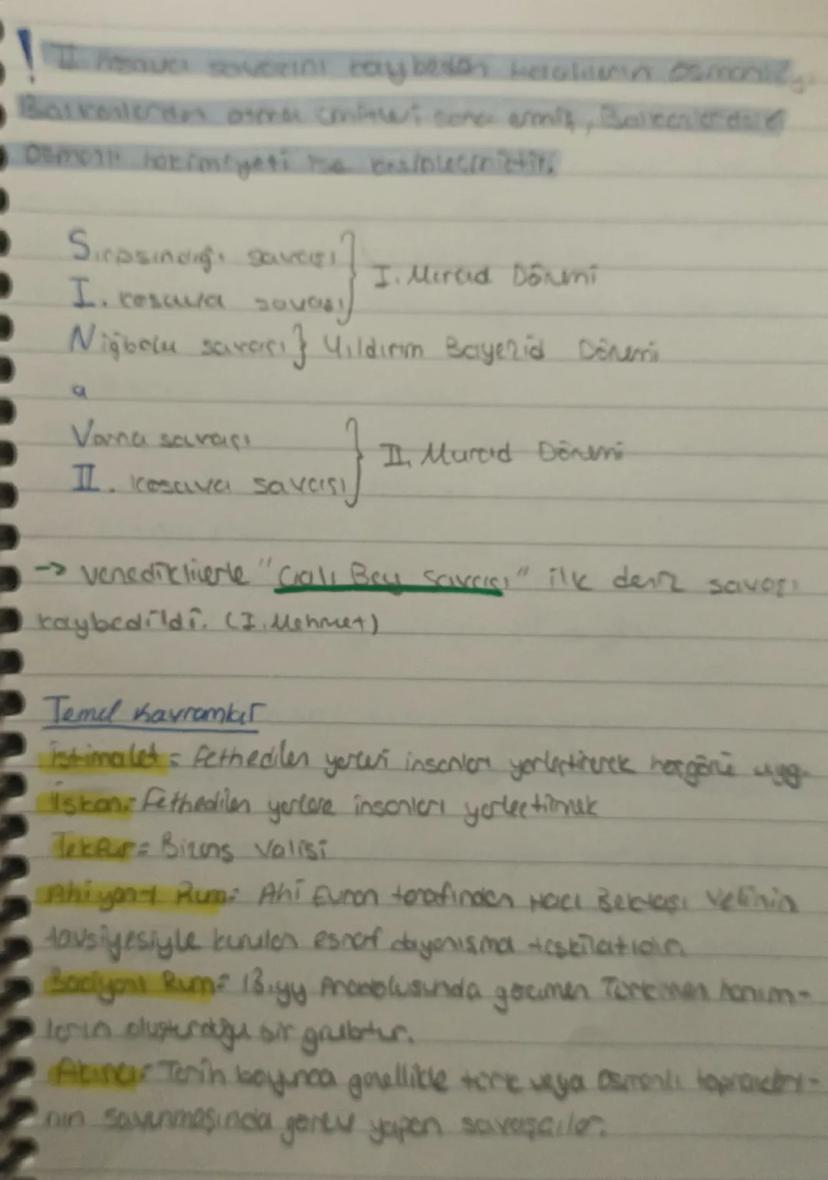 ! II Kosova savaşını kaybeden Osmanlıyı
Balkanlardan atma ümitleri sona ermiş, Balkanlardaki
Osmanlı hakimiyeti ise kesinleşmiştir.
Sırpsındığı savaşı
I. Kosova savaşı } I. Murad Dönemi
Niğbolu savaşı } Yıldırım Bayezid Dönemi
a
Varna savaşı
II. Kosova savaşı } II. Murad Dönemi
→ Venediklilerle "Çalı Bey Savaşı" ilk deniz savaşı
kaybedildi. (I. Mehmet)
Temel Kavramlar
İstimalet = Fethedilen yerleri insanları yerleştirerek hoşgörü uyg.
İskan: Fethedilen yerlere insanları yerleştirmek
Tekfur = Bizans Valisi
Ahiyan-ı Rum: Ahi Evran tarafından Hacı Bektaşı Velinin
tavsiyesiyle kurulan esnaf dayanışma teşkilatıdır.
Bacıyanı Rum = 13.yy Anadolusunda göçmen Türkmen hanım-
ların oluşturduğu bir grubtur.
Akıncı: Tarih boyunca genellikle türk veya Osmanlı toprakları-
nın savunmasında görev yapan savaşçılar.